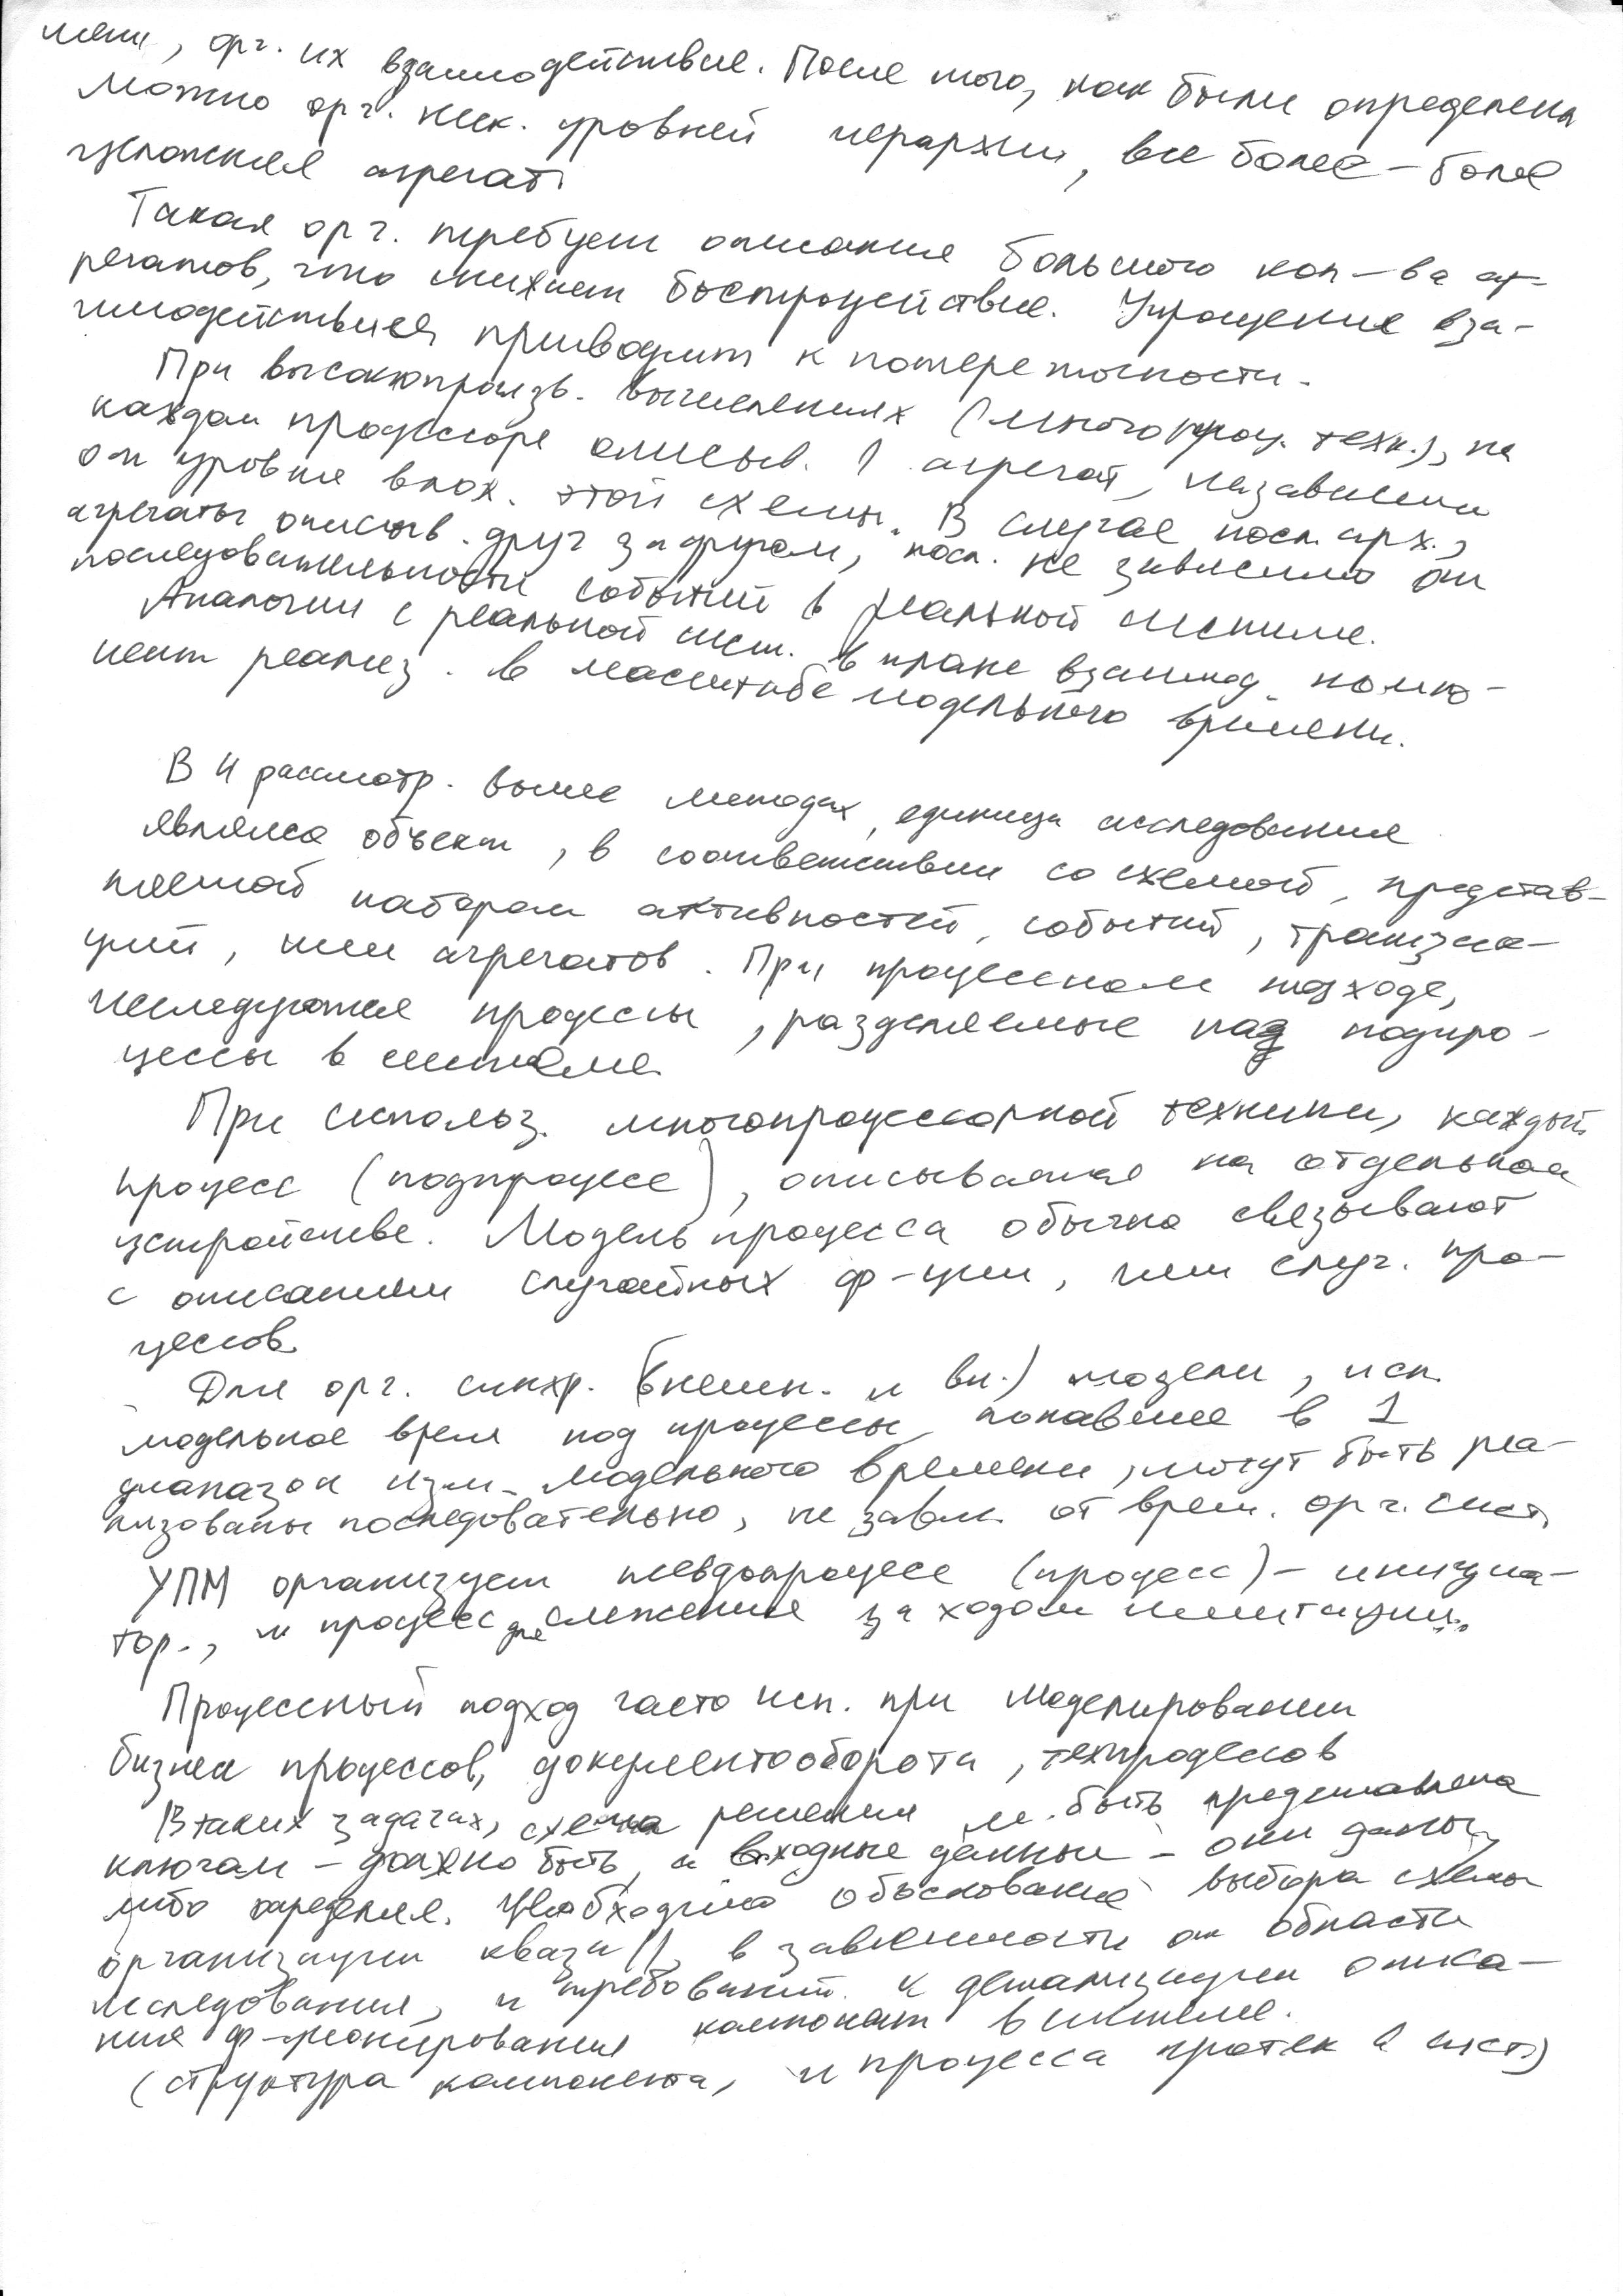 мени, орг. их взаимодействие. После того, как были определены
Можно орг. неск. уровней иерархии, все более-более
усложняя агрегат.
Такая орг. требует описания большого кол-ва аг-
регатов, что снижает быстродействие. Упрощение вза-
имодействия приводит к потере точности.
При высокопроизв. вычислениях (многопроц. техн.), на
каждом процессоре описыв. 1 агрегат, независимо
от уровня влож. этой схемы. В случае посл. арх.,
агрегаты описыв. друг за другом, посл. не зависимо от
последовательности событий в реальной системе.
Аналогии с реальной сист. в плане взаимод. компо-
нент реализ. в масштабе модельного времени.
В 4 рассмотр. выше методах, единица исследования
являлся объект, в соответствии со схемой, представ-
ляемой набором активностей, событий, транзак-
ций, или агрегатов. При процессном подходе,
исследуются процессы, разделяемые на подпро-
цессы в системе.
При использ. многопроцессорной техники, каждый
процесс (подпроцесс), описывается на отдельном
устройстве. Модель процесса обычно связывают
с описанием случайных ф-ции, или случ. про-
цессов.
Для орг. синхр. (внешн. и вн.) модели, исп.
модельное время подпроцессы, попавшие в 1
диапазон изм. модельного времени, могут быть реа-
лизованы последовательно, не завис. от врем. орг. сист.
УПМ организует псевдопроцесс (процесс) - инициа-
тор., и процесс для слежения за ходом имитации.
Процессный подход часто исп. при моделировании
бизнес процессов, документооборота, техпроцессов
В таких задачах, схема решения м. быть представлена
ключам - должно быть, а входные данные - они даны,
либо определ. Необходимо обоснование выбора схемы
организации квази ||, в зависимости от области
исследования, и требований к детализации описа-
ния ф-ционирования компонент в системе.
(структура компонента, и процесса протек в сист.)